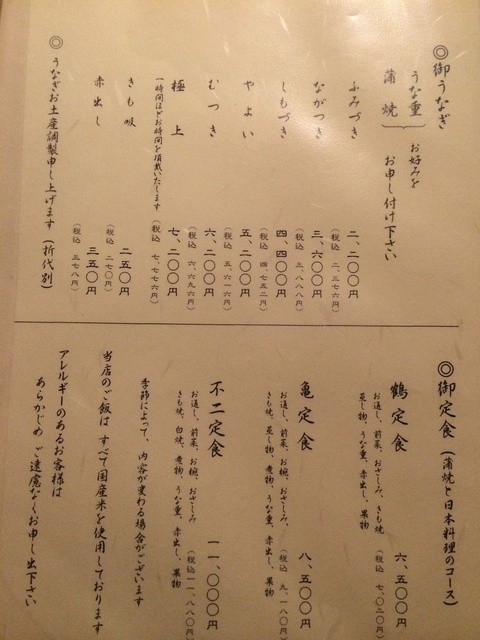 ◎御うなぎ
うな重
蒲焼
お好みを
お申し付け下さい
ふみづき 二、二〇〇円
(税込 二、三七六円)
ながつき 三、六〇〇円
(税込 三、八八八円)
しもづき 四、四〇〇円
(税込 四、七五二円)
やよい 五、二〇〇円
(税込 五、六一六円)
むつき 六、二〇〇円
(税込 六、六九六円)
極上 七、二〇〇円
一時間ほどお時間を頂戴いたします (税込 七、七七六円)
きも吸 二五〇円
(税込 二七〇円)
赤出し 三五〇円
(税込 三七八円)
◎うなぎお土産調製申し上げます(折代別)
◎御定食(蒲焼と日本料理のコース)
鶴定食 六、五〇〇円
お通し、前菜、おさしみ、きも焼 (税込 七、〇二〇円)
蒸し物、うな重、赤出し、果物
亀定食 八、五〇〇円
お通し、前菜、お椀、おさしみ、 (税込 九、一八〇円)
きも焼、蒸し物、煮物、うな重、赤出し、果物
不二定食 一一、〇〇〇円
お通し、前菜、お椀、おさしみ (税込 一一、八八〇円)
きも焼、白焼、煮物、うな重、赤出し、果物
季節によって、内容が変わる場合がございます
当店のご飯は すべて国産米を使用しております
アレルギーのあるお客様は
あらかじめ ご遠慮なくお申し出下さい